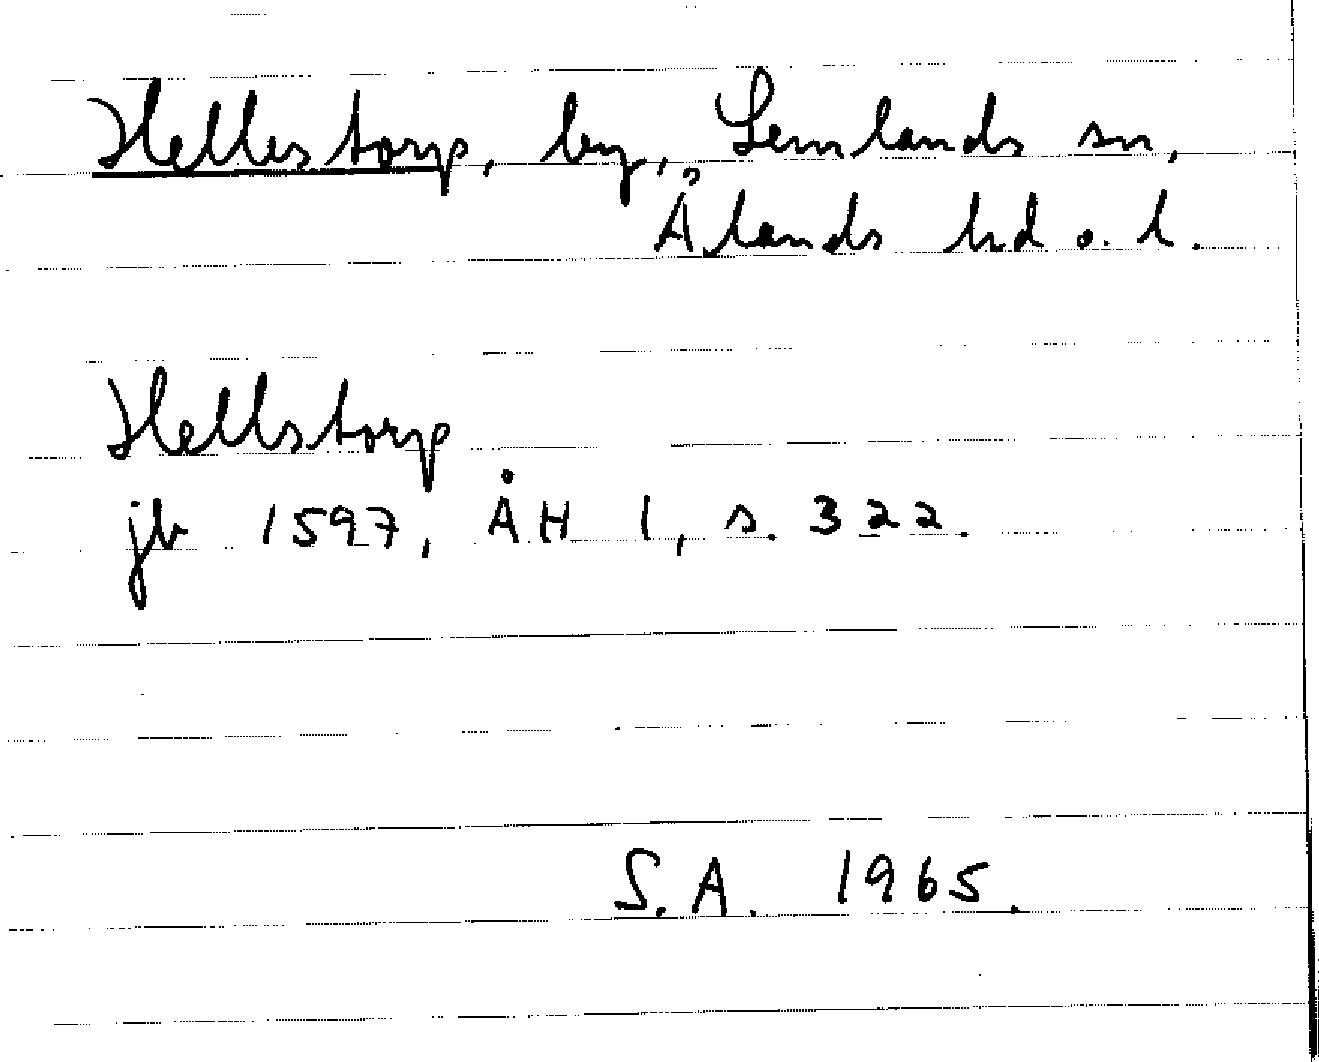 Hellestorp, by, Lemlands sn,
Ålands hd o. l.
Hellstorp
jb 1597, ÅH 1, s. 322.
S.A. 1965.